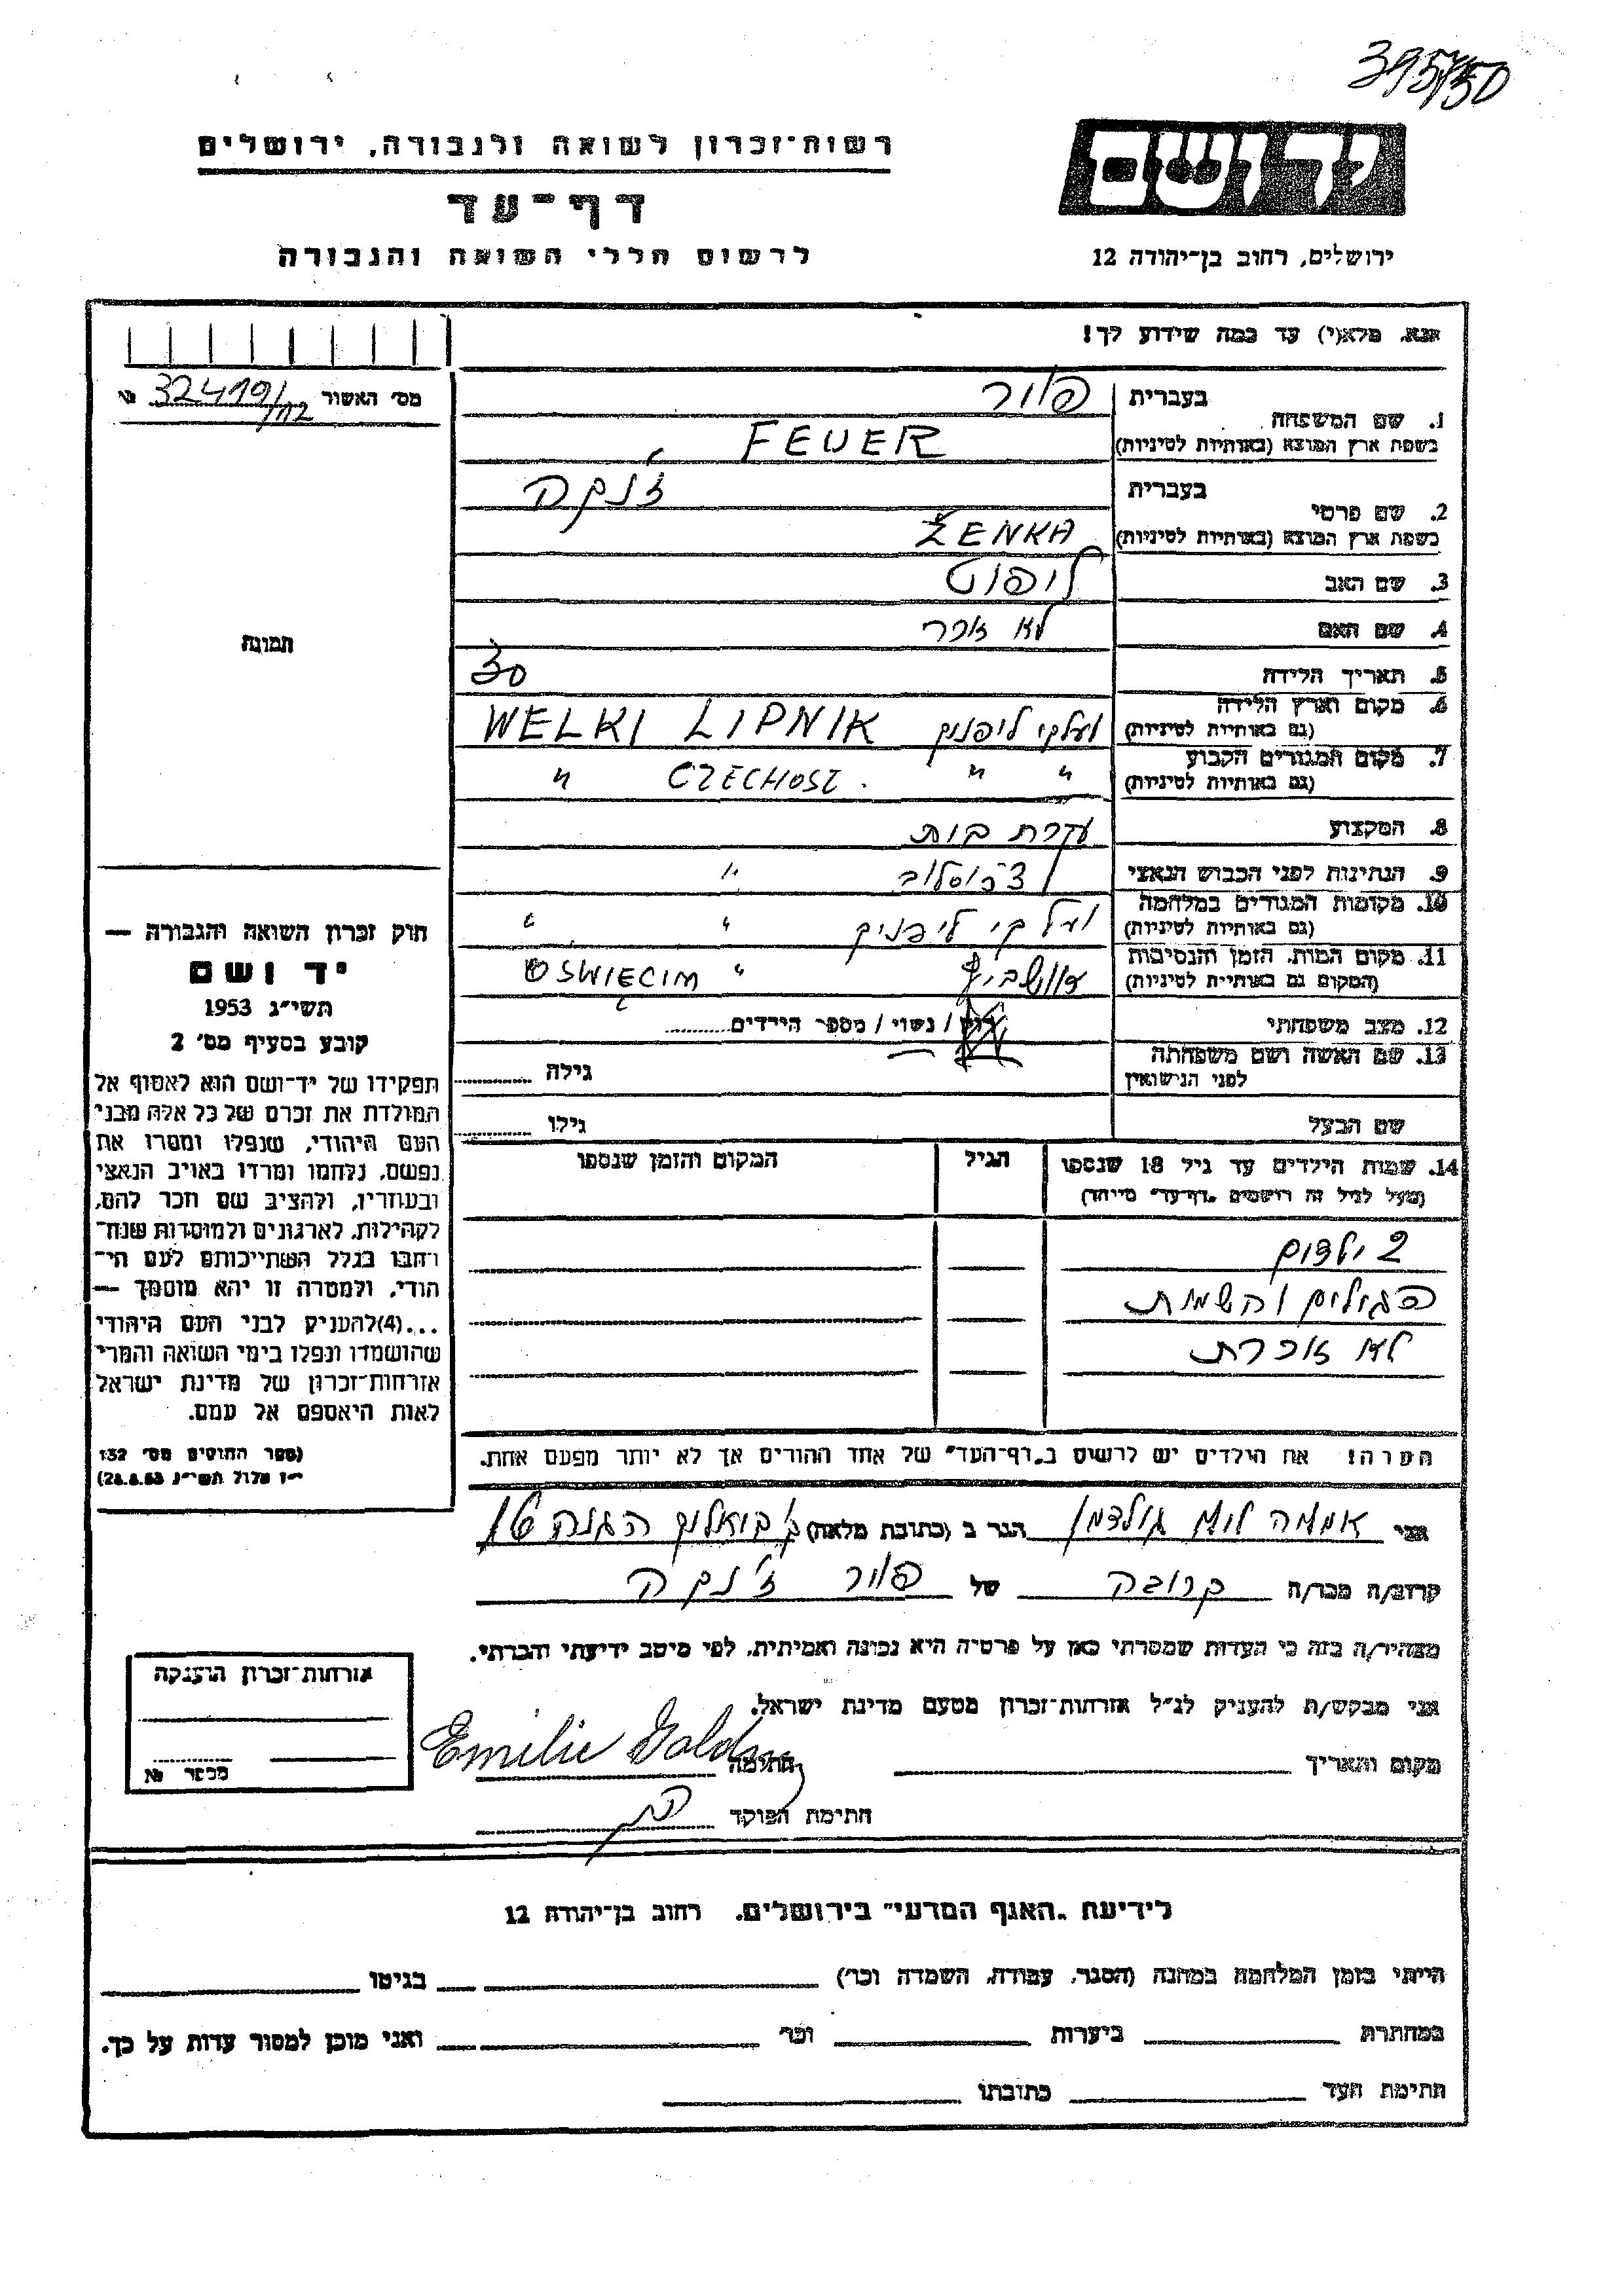 395/50
רשות־זכרון לשואה ולגבורה, ירושלים
יד ושם
דף־עד
לרשום חללי השואה והגבורה
ירושלים, רחוב בן־יהודה 12
אנא, מלא(י) עד כמה שידוע לך!
מס׳ האשור № 32419/112
1. שם המשפחה בעברית פויר
בשפת ארץ המוצא (באותיות לטיניות) FEUER
2. שם פרטי בעברית ז׳נקה
בשפת ארץ המוצא (באותיות לטיניות) ŽENKA
3. שם האב ליפוט
4. שם האם לא זוכר
5. תאריך הלידה 30
6. מקום וארץ הלידה (גם באותיות לטיניות) ועלקי ליפניק WELKI LIPNIK
7. מקום המגורים הקבוע (גם באותיות לטיניות) " " CZECHOSL. "
8. המקצוע עקרת בית
9. הנתינות לפני הכבוש הנאצי צ׳כוסלוב׳ "
10. מקומות המגורים במלחמה (גם באותיות לטיניות) ועלקי ליפניק " "
11. מקום המות, הזמן והנסיבות (המקום גם באותיות לטיניות) אושביץ " OSWIĘCIM
12. מצב משפחתי רווק / נשוי / מספר הילדים
13. שם האשה ושם משפחתה לפני הנישואין גילה
שם הבעל גילו
14. שמות הילדים עד גיל 18 שנספו הגיל המקום והזמן שנספו
(מעל לגיל זה רושמים „דף־עד״ מיוחד)
2 ילדים
הגילים והשמות
לא זוכרת
הערה! את הילדים יש לרשום ב„דף־העד״ של אחד ההורים אך לא יותר מפעם אחת.
תמונה
חוק זכרון השואה והגבורה —
יד ושם
תשי״ג 1953
קובע בסעיף מס׳ 2
תפקידו של יד־ושם הוא לאסוף אל
המולדת את זכרם של כל אלה מבני
העם היהודי, שנפלו ומסרו את
נפשם, נלחמו ומרדו באויב הנאצי
ובעוזריו, ולהציב שם וזכר להם,
לקהילות, לארגונים ולמוסדות שנח־
רבו בגלל השתייכותם לעם הי־
הודי, ולמטרה זו יהא מוסמך —
...(4)להעניק לבני העם היהודי
שהושמדו ונפלו בימי השואה והמרי
אזרחות־זכרון של מדינת ישראל
לאות היאספם אל עמם.
(ספר החוקים מס׳ 132
י״ז אלול תשי״ג 28.8.53)
אני גולדמן הגר ב (כתובת מלאה) ק׳ ביאליק הגנה
קרוב/ה מכר/ה קרובה של פויר ז׳נקה
מצהיר/ה בזה כי העדות שמסרתי כאן על פרטיה היא נכונה ואמיתית, לפי מיטב ידיעתי והכרתי.
אני מבקש/ת להעניק לנ״ל אזרחות־זכרון מטעם מדינת ישראל.
מקום ותאריך חתימה Emilie
חתימת הפוקד
אזרחות־זכרון הוענקה
מספר №
לידיעת „האגף המדעי״ בירושלים, רחוב בן־יהודה 12
הייתי בזמן המלחמה במחנה (הסגר, עבודה, השמדה וכו׳) בגיטו
במחתרת ביערות וכו׳ ואני מוכן למסור עדות על כך.
חתימת העד כתובתו